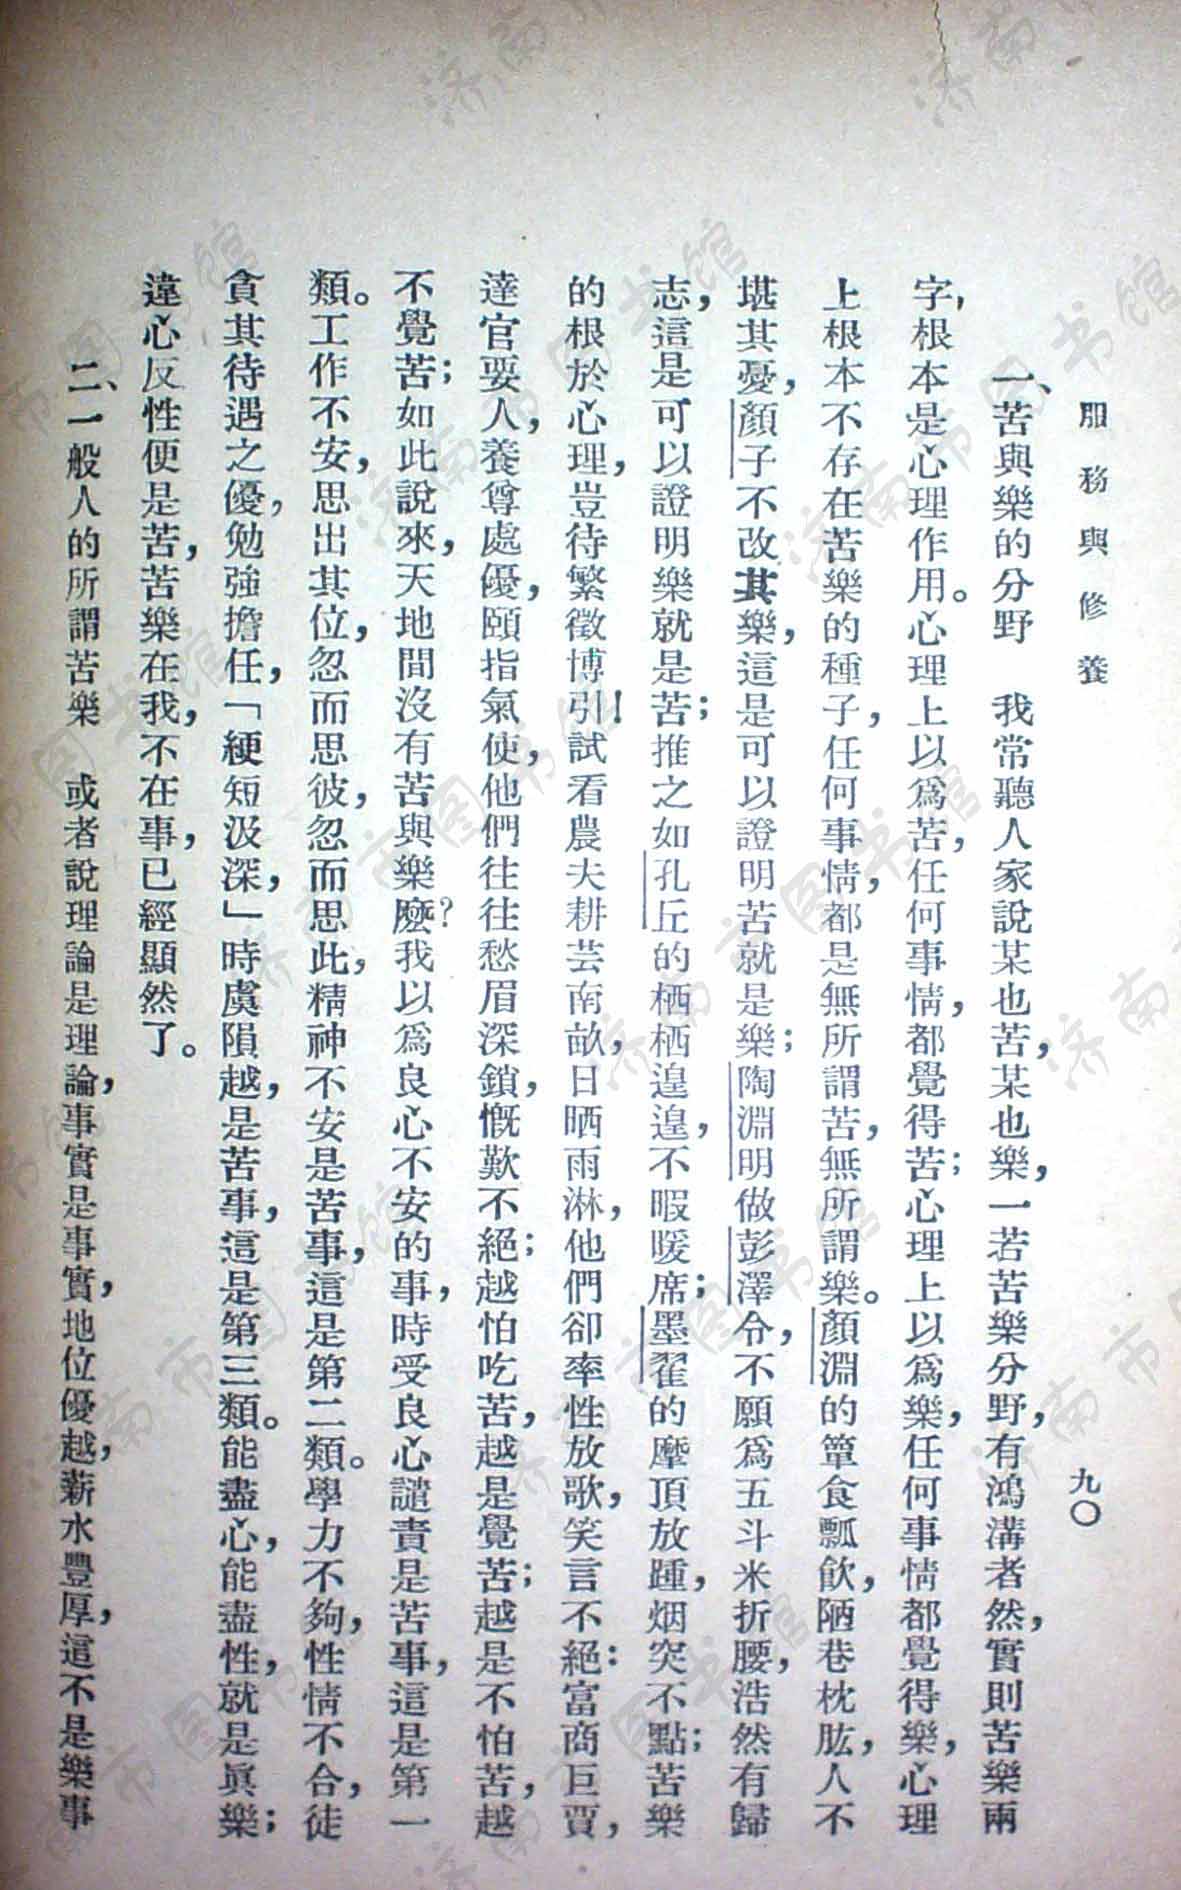 服務與修養
九〇
一、苦與樂的分野　我常聽人家說某也苦，某也樂，一若苦樂分野，有鴻溝者然，實則苦樂兩
字，根本是心理作用。心理上以爲苦，任何事情，都覺得苦；心理上以爲樂，任何事情都覺得樂，心理
上根本不存在苦樂的種子，任何事情，都是無所謂苦，無所謂樂。顏淵的簞食瓢飲，陋巷枕肱，人不
堪其憂，顏子不改其樂，這是可以證明苦就是樂；陶淵明做彭澤令，不願爲五斗米折腰，浩然有歸
志，這是可以證明樂就是苦；推之如孔丘的栖栖遑遑，不暇暖席；墨翟的摩頂放踵，烟突不點；苦樂
的根於心理，豈待繁徵博引！試看農夫耕芸南畝，日晒雨淋，他們卻率性放歌，笑言不絕：富商巨賈，
達官要人，養尊處優，頤指氣使，他們往往愁眉深鎖，慨歎不絕；越怕吃苦，越是覺苦；越是不怕苦，越
不覺苦；如此說來，天地間沒有苦與樂麼？我以爲良心不安的事，時受良心譴責是苦事，這是第一
類。工作不安，思出其位，忽而思彼，忽而思此，精神不安是苦事，這是第二類。學力不夠，性情不合，徒
貪其待遇之優，勉強擔任，「綆短汲深，」時虞隕越，是苦事，這是第三類。能盡心，能盡性，就是眞樂；
違心反性便是苦，苦樂在我，不在事，已經顯然了。
二、一般人的所謂苦樂　或者說理論是理論，事實是事實，地位優越，薪水豐厚，這不是樂事
济南市图书馆